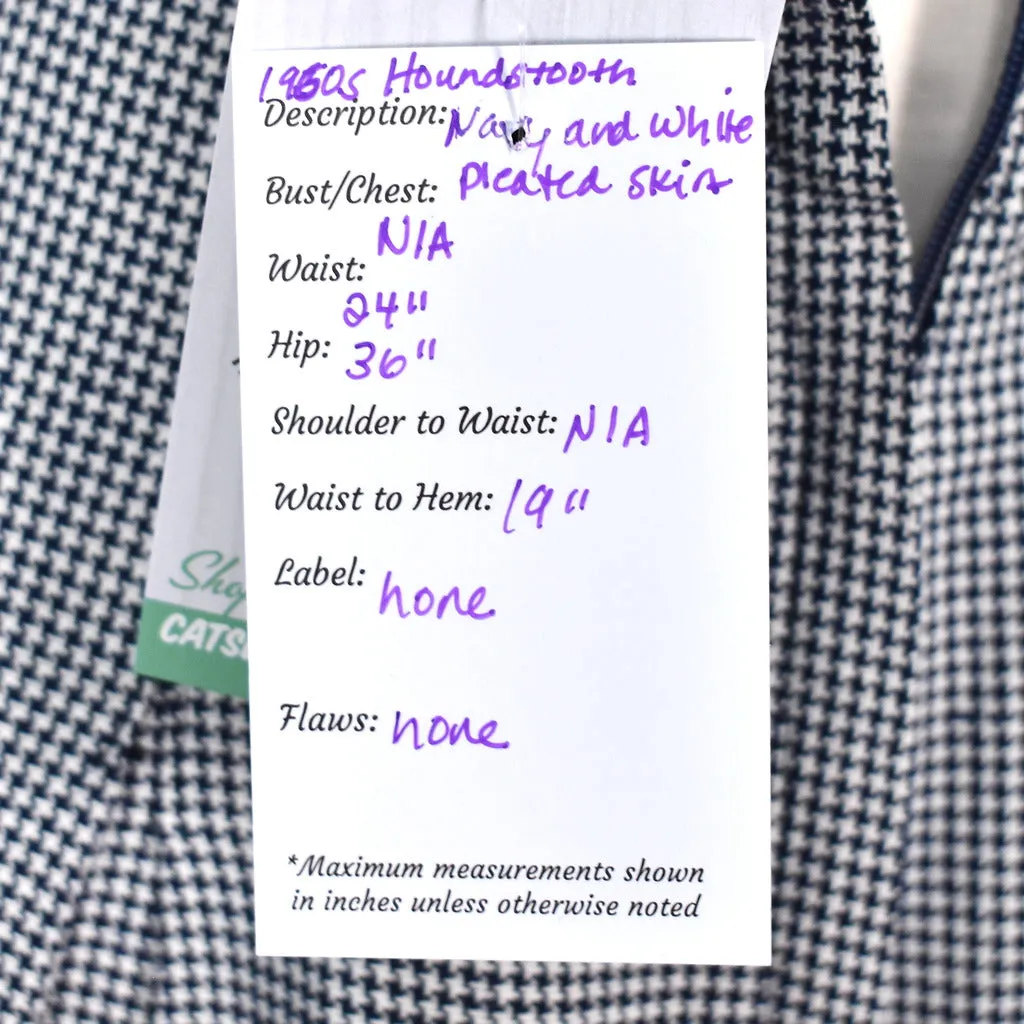 1960s Houndstooth
Description: Navy and White
Bust/Chest: Pleated skirt
N/A
Waist:
24"
Hip: 36"
Shoulder to Waist: N/A
Waist to Hem: 19"
Label: none
Shop
CATS
Flaws: none
*Maximum measurements shown
in inches unless otherwise noted